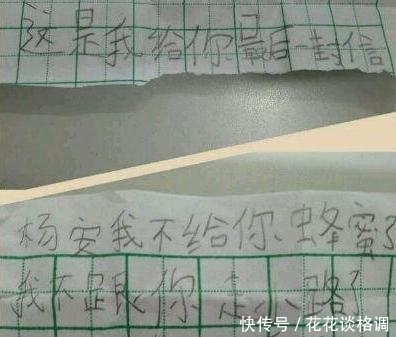 这是我给你最后一封信
杨安我不给你蜂蜜了
我不跟你走小路了
快传号/花花谈格调